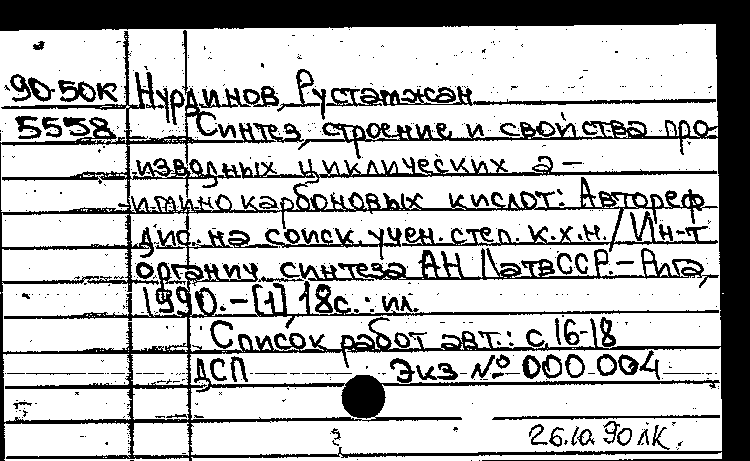 90-50к Нурдинов, Рустамжан
5558 Синтез, строение и свойства про-
изводных циклических а-
иминокарбоновых кислот: Автореф
дис. на соиск. учен. степ. к.х.н. / Ин-т
органич. синтеза АН ЛатвССР. – Рига,
1990. – [1], 18с. : ил.
Список работ авт.: с. 16-18
ДСП Экз № 000 004
26.10.90 ЛК.